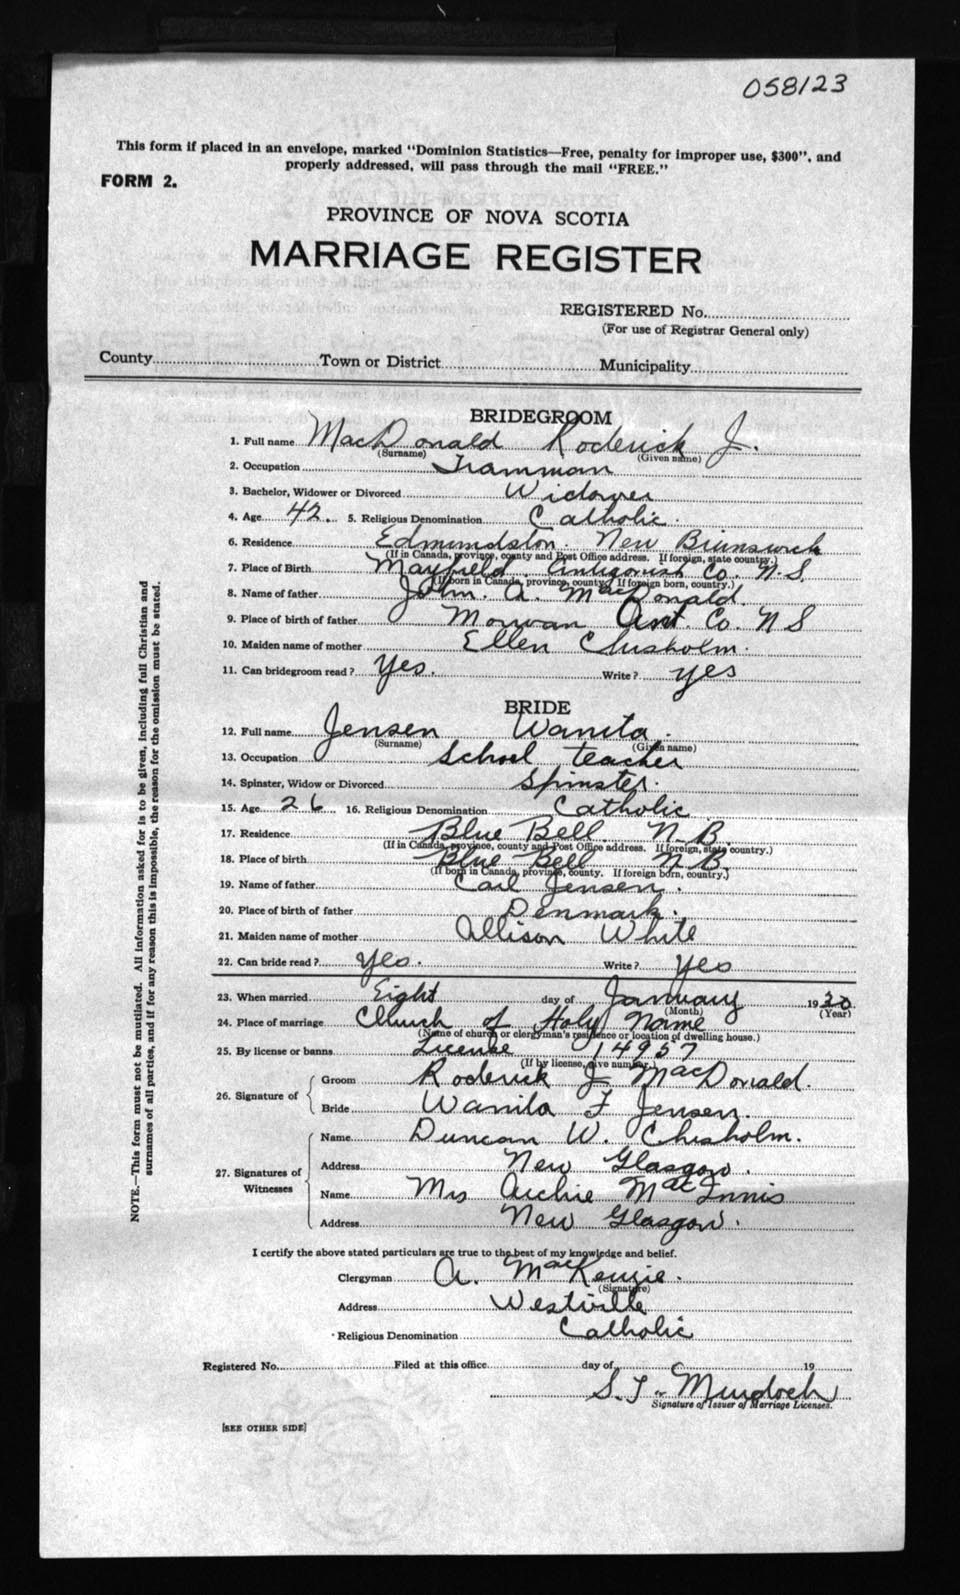 058123
This form if placed in an envelope, marked "Dominion Statistics—Free, penalty for improper use, $300", and
properly addressed, will pass through the mail "FREE."
FORM 2.
PROVINCE OF NOVA SCOTIA
MARRIAGE REGISTER
REGISTERED No.
(For use of Registrar General only)
County Town or District Municipality
BRIDEGROOM
1. Full name MacDonald Roderick J.
(Surname) (Given name)
2. Occupation Tramman
3. Bachelor, Widower or Divorced Widower
4. Age 42. 5. Religious Denomination Catholic.
6. Residence Edmundston. New Brunswick
(If in Canada, province, county and Post Office address. If foreign, state country.)
7. Place of Birth Mayfield. Antigonish Co. N.S.
(If born in Canada, province, county. If foreign born, country.)
8. Name of father John. A. MacDonald.
9. Place of birth of father Morvan Ant. Co. N S
10. Maiden name of mother Ellen Chisholm.
11. Can bridegroom read? Yes. Write? yes
BRIDE
12. Full name Jensen Wanita.
(Surname) (Given name)
13. Occupation School teacher
14. Spinster, Widow or Divorced Spinster.
15. Age 26 16. Religious Denomination Catholic
17. Residence Blue Bell. N.B.
(If in Canada, province, county and Post Office address. If foreign, state country.)
18. Place of birth Blue Bell N.B.
(If born in Canada, province, county. If foreign born, country.)
19. Name of father Carl Jensen.
20. Place of birth of father Denmark.
21. Maiden name of mother Allison White
22. Can bride read? Yes. Write? Yes
23. When married Eight day of January 19
(Month) (Year)
24. Place of marriage Church of Holy Name
(Name of church or clergyman's residence or location of dwelling house.)
25. By license or banns License 14957
(If by license, give number.)
26. Signature of { Groom Roderick J MacDonald.
Bride Wanita F Jensen.
27. Signatures of Witnesses { Name Duncan W. Chisholm.
Address New Glasgow.
Name Mrs Archie MacInnis
Address New Glasgow.
I certify the above stated particulars are true to the best of my knowledge and belief.
Clergyman A. MacKenzie.
(Signature)
Address Westville
Religious Denomination Catholic
Registered No. Filed at this office day of 19
S. T. Murdoch
Signature of Issuer of Marriage Licenses.
[SEE OTHER SIDE]
NOTE.—This form must not be mutilated. All information asked for is to be given, including full Christian and
surnames of all parties, and if for any reason this is impossible, the reason for the omission must be stated.